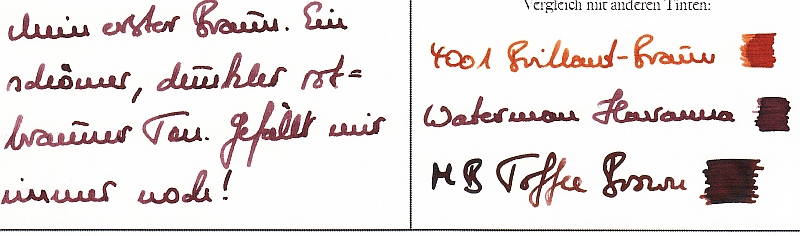 Mein erster Braun. Ein
schöner, dunkler rot=
brauner Ton. Gefällt mir
immer noch!
Vergleich mit anderen Tinten:
4001 Brillant-Braun
Waterman Havanna
MB Toffee Brown